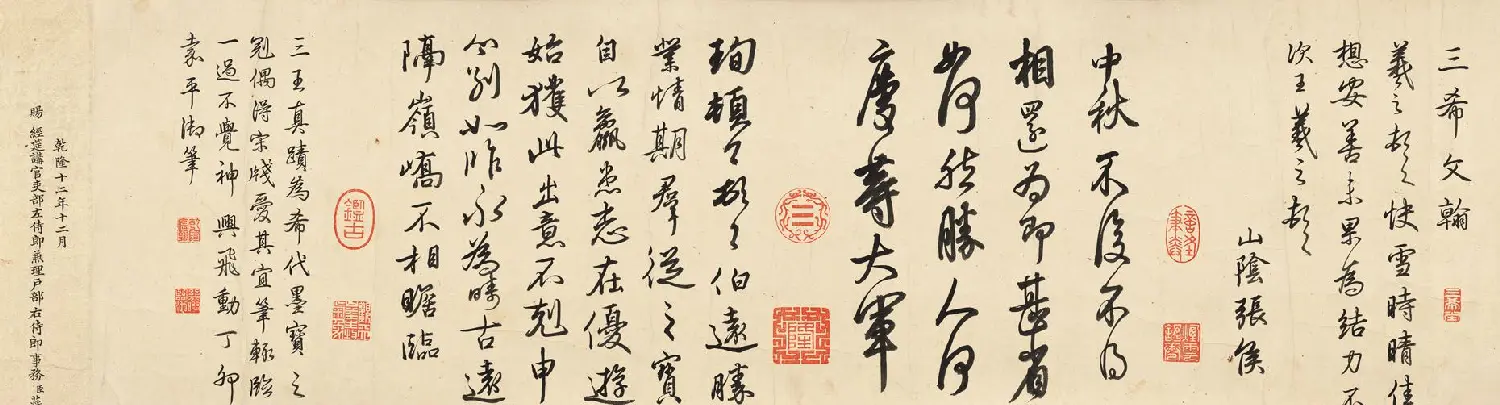 三希文翰
羲之頓首快雪時晴佳
想安善未果為結力不
次王羲之頓首
山陰張侯
中秋不復不得
相還為即甚省
如何然勝人何
慶等大軍
乾隆
珣頓〻首〻伯遠勝
業情期羣從之寶
自以羸患志在優遊
始獲此出意不剋申
分別如昨永為疇古遠
隔嶺嶠不相瞻臨
鑑古
三王真蹟為希代墨寶之
冠偶得宋牋愛其宜筆輒臨
一過不覺神興飛動丁卯
嘉平御筆
乾隆十二年十二月
賜 經筵講官吏部左侍郎兼理戶部右侍郎事務臣